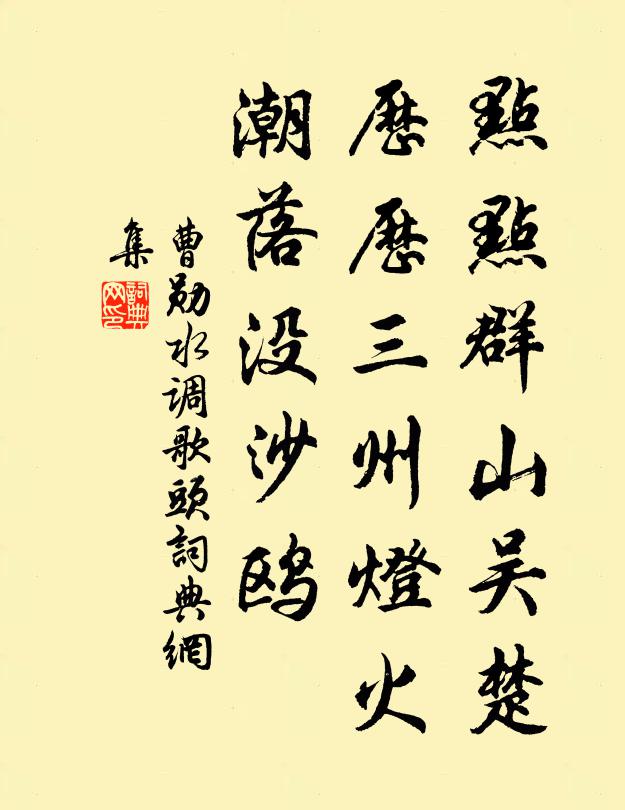 點點群山吴楚
歷歷三州燈火
潮落没沙鸥
曹勛水调歌頭詞典網
集
詞典
网印